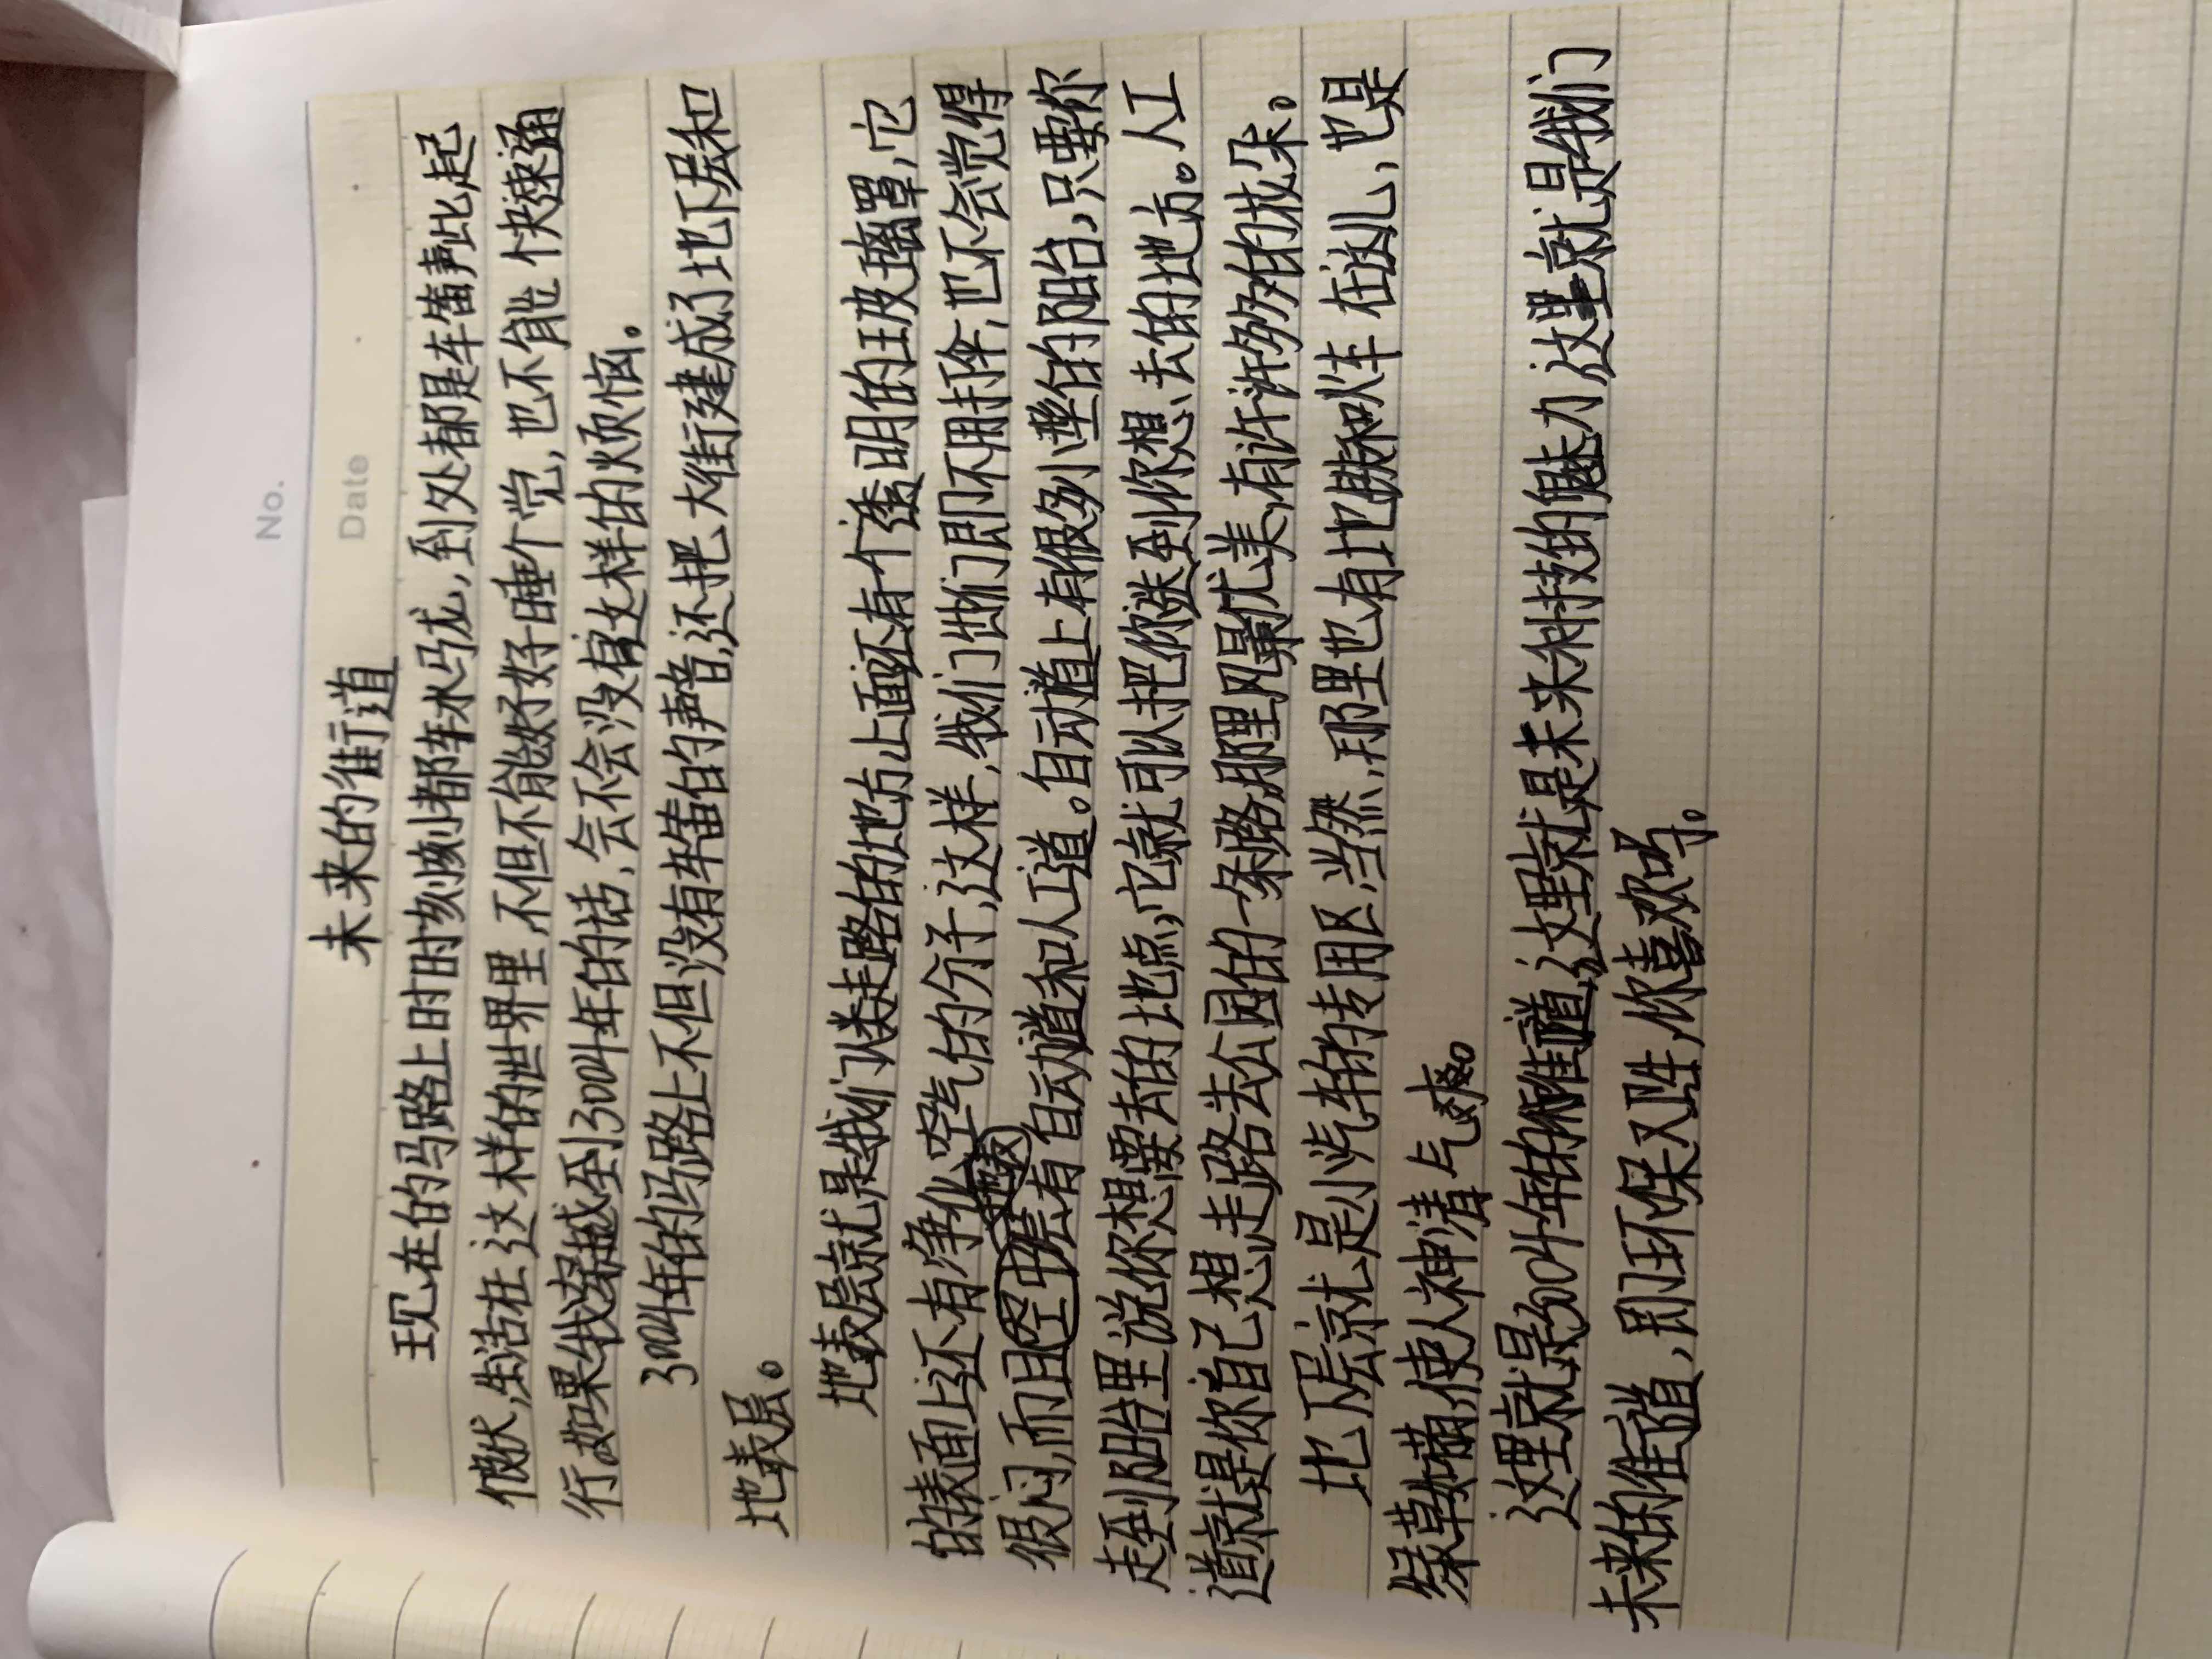 No.
Date
未来的街道
现在的马路上时时刻刻都车水马龙,到处都是车笛声此起
彼伏,生活在这样的世界里,不但不能好好睡个觉,也不能快速通
行,如果我穿越到3004年的话,会不会没有这样的烦恼。
3004年的马路上不但没有车笛的声音,还把大街建成了地下层和
地表层。
地表层就是我们人类走路的地方上面还有一个透明的玻璃罩,它
的表面上还有净化空气的分子,这样,我们他们即不用打伞,也不会觉得
很闷,而且空中层有自动道和人工道。自动道上有很多小型的阳台,只要你
走到阳台里说你想要去的地点,它就可以把你送到你想去的地方。人工
道就是你自己想走路去公园的一条路,那里风景优美,有许许多多的花朵。
地下层就是小汽车的专用区,当然,那里也有地铁和火车在这儿,也是
绿草如茵,使人神清气爽。
这里就是3004年的街道,这里就是未来科技的魅力,这里就是我们
未来的街道,即环保又卫生,你喜欢吗。